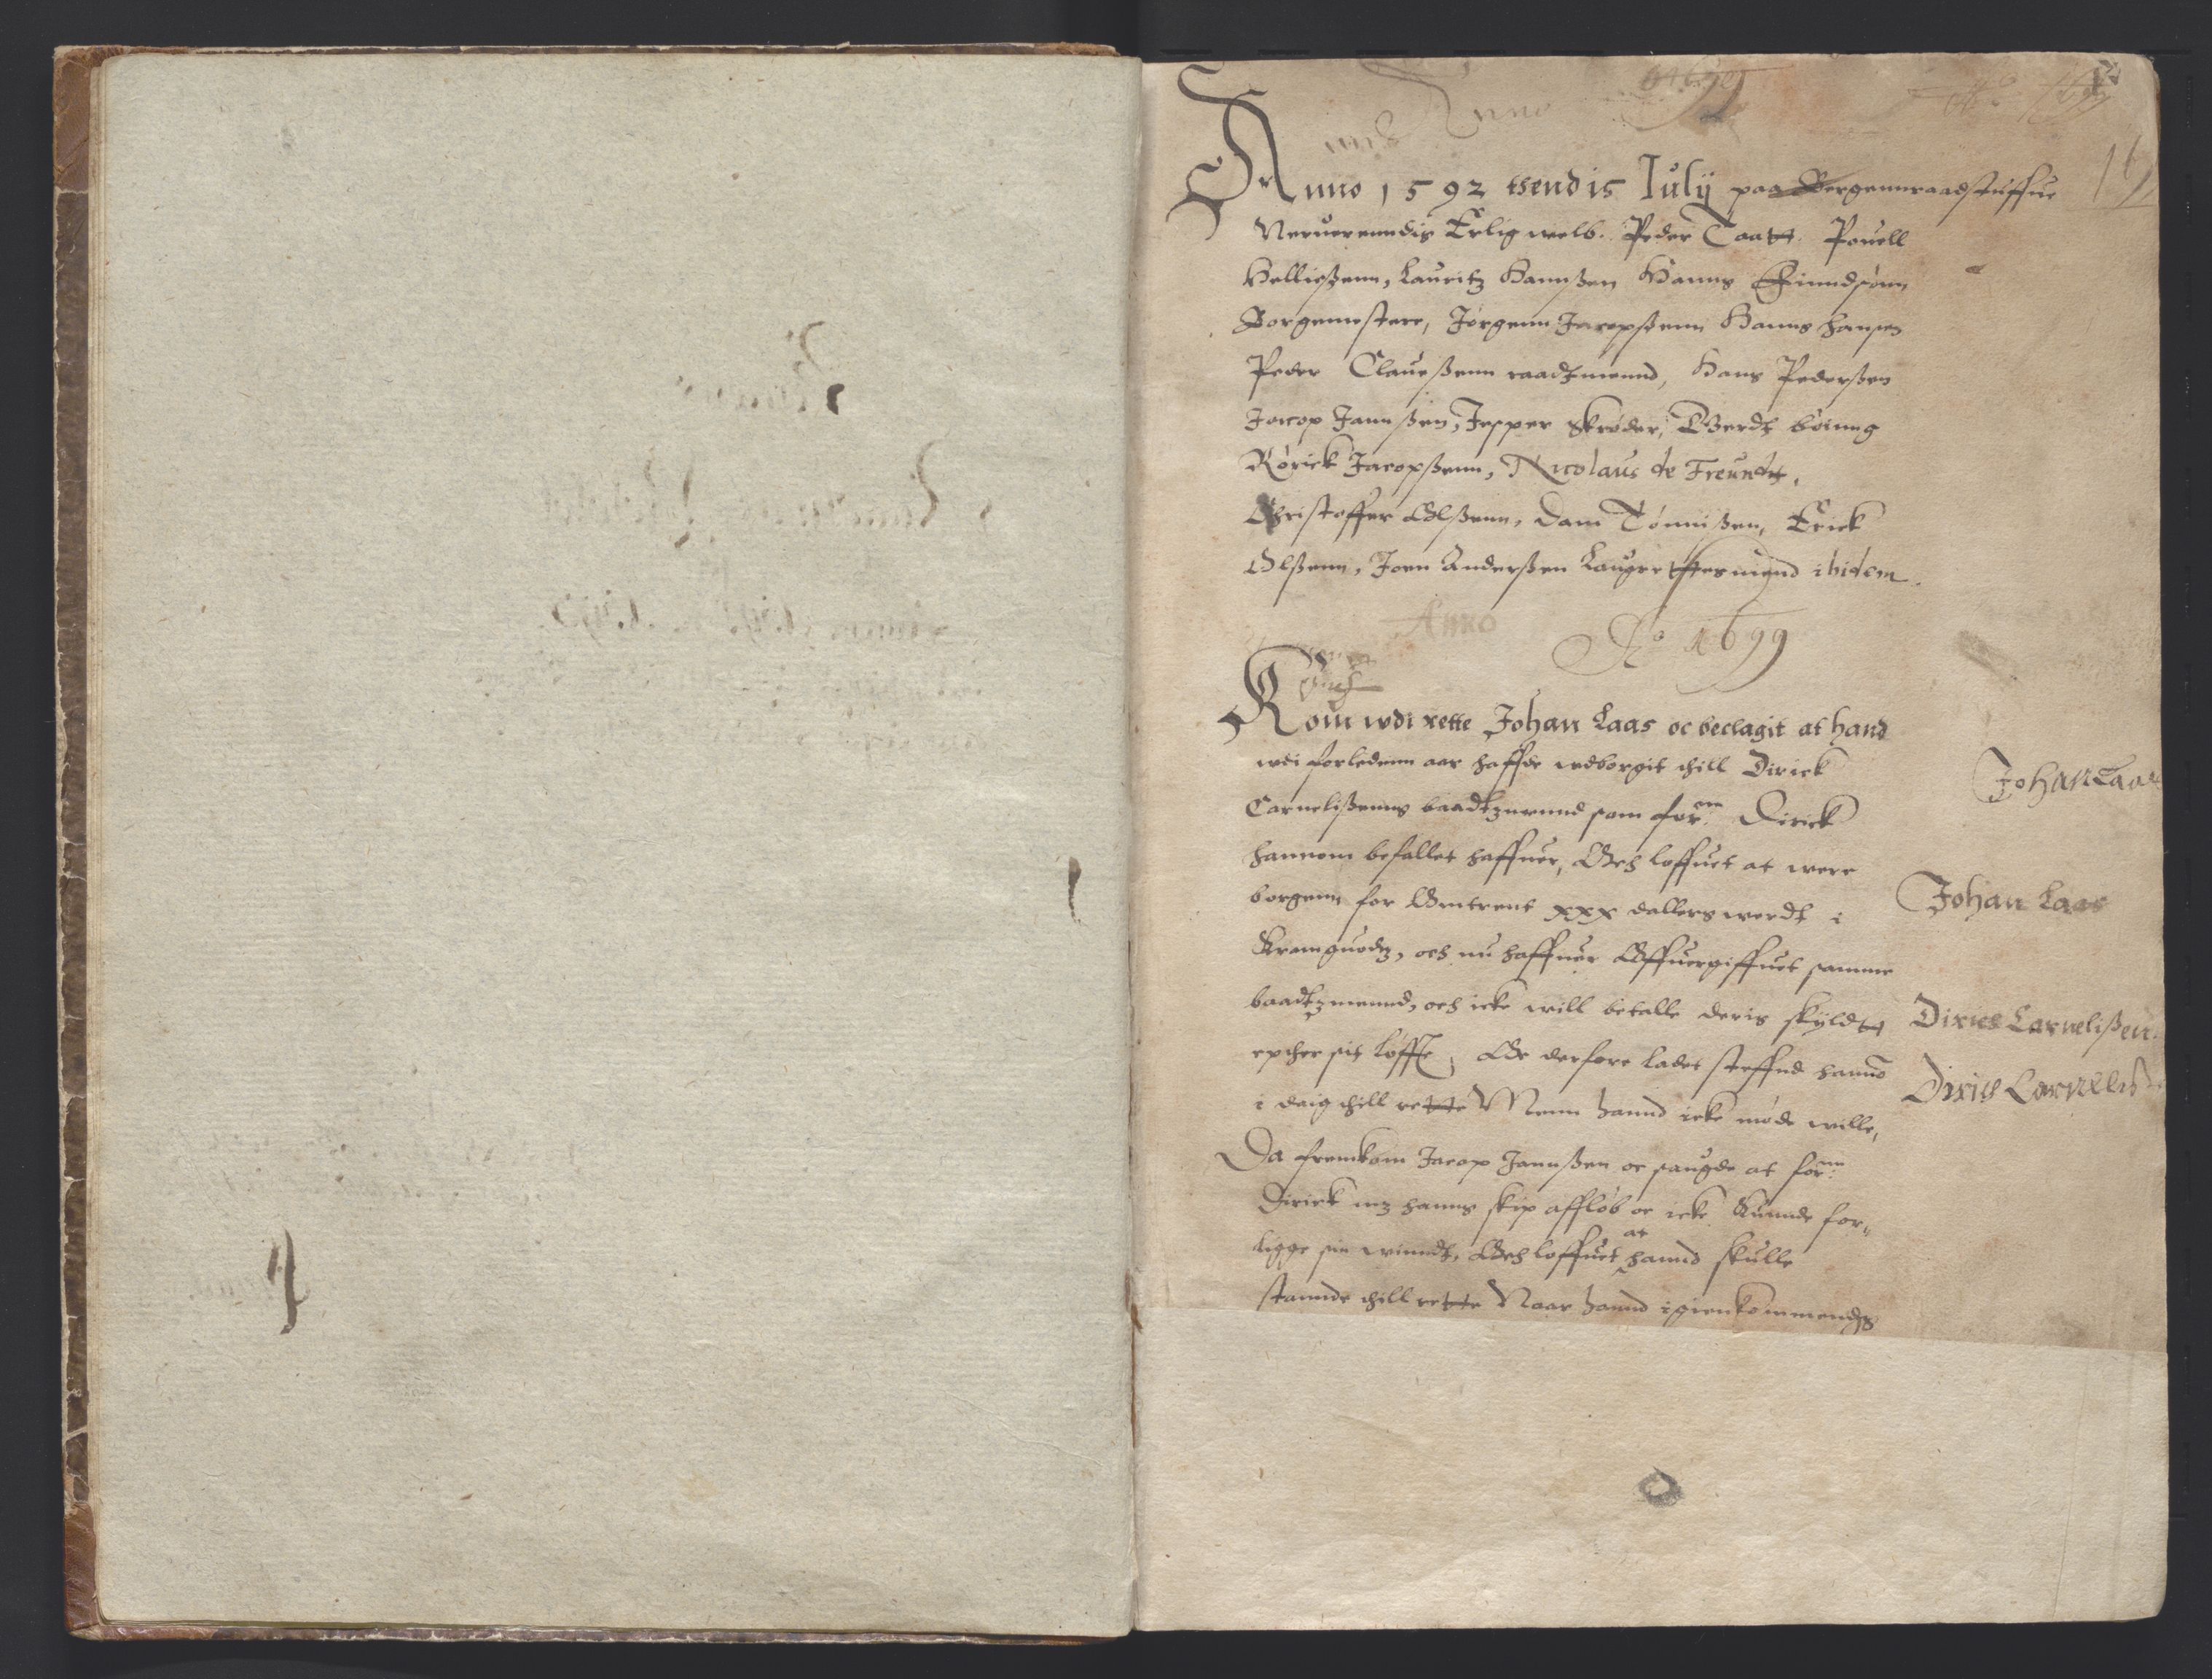 Anno
Anno 1592 thend 15 Iulij paa Bergennraadstuffue
Neruerenndis Erlig welb. Peder Taatt. Pouell
Helließenn, Lauritz Hannßen Hanns
Borgemestere, Jørgenn Jacopßenn Hanns Hansen
Peder Claueßenn raadzmennd, Hans Pederßen
Jacop Jannßen, Jesper Skrøder, Gerdt
Rørick Jacopßenn, Nicolaus de Freundtt,
Christoffer Olßenn, Dam Tønnißen, Erick
Olßenn, Joen Anderßen Laugrettesmend ibidem
Anno
Ao 1699
Kom wdi rette Johan Laas oc beclagit at hand
wdi forledenn aar haffde wdborgit thill Dirick
Carnelißenns baadtzmennd som forne: Dirick
hannom befallet haffuer, Och loffuet at were
borgenn for Omtrent xxx dallers werdt i
Kramguodtz, och nu haffuer Offuergiffuet samme
baadtzmennd, och icke will betalle deris skyldtt
epther sit løffte, Oc derfore ladet steffnd hanno
i daig thill rette Menn hannd icke møde wille,
Da fremkom Jacop Jannßen oc saugde at forne:
Dirick mz hanns skip affløb oc icke kunnde for-
ligge sin winndt, Och loffuet at hannd skulle
stannde thill rette Naar hannd igienkommendis
Johan Laas
Johan Laas
Dirick Carnelißen.
Dirich Carneliß